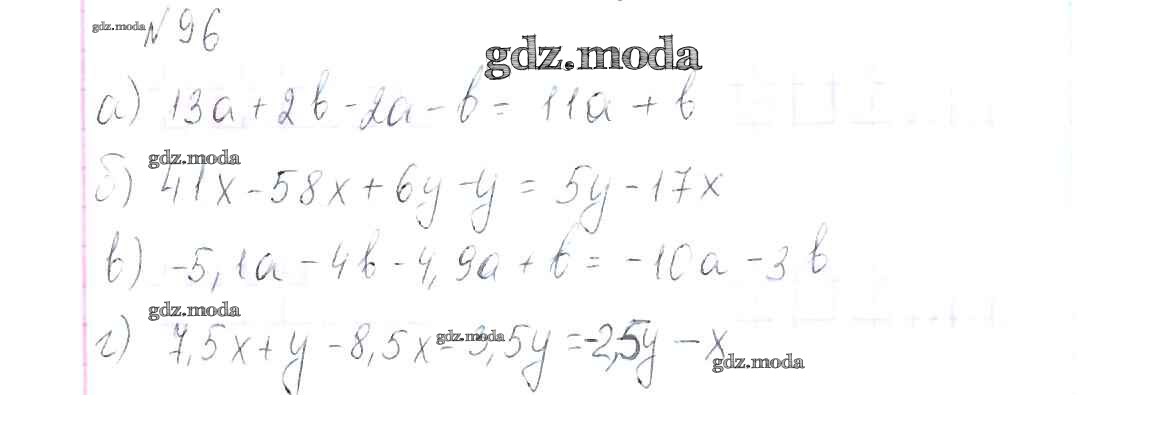 gdz.moda № 96
gdz.moda
а) 13a + 2b - 2a - b = 11a + b
gdz.moda
б) 41x - 58x + 6y - y = 5y - 17x
в) -5,1a - 4b - 4,9a + b = -10a - 3b
gdz.moda
г) 7,5x + y - 8,5x - 3,5y = -2,5y - x
gdz.moda
gdz.moda